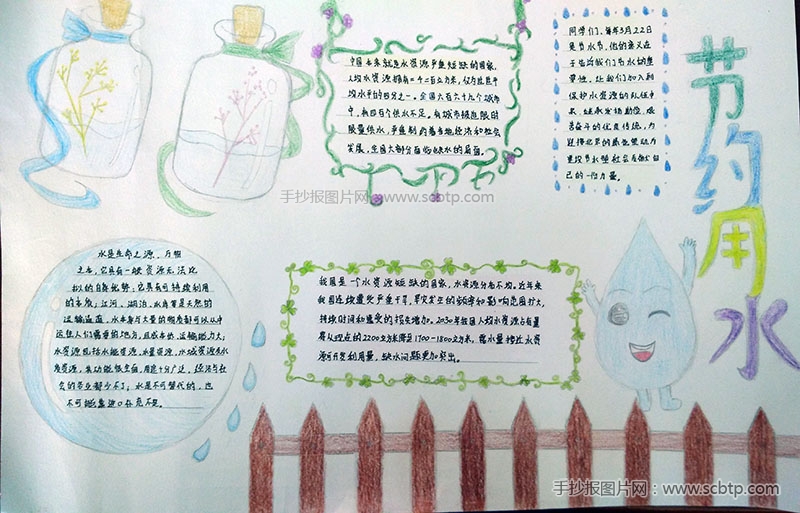 中国本来就是水资源严重短缺的国家,
人均水资源拥有二千二百立方米,仅为世界平
均水平的四分之一。全国六百六十九个城市
中,有四百个供水不足。有城市被迫限时
限量供水,严重制约着当地经济和社会
发展,全国大部分面临缺水的局面。
同学们,每年3月22日
是节水节,他的意义在
于告诉我们节水的重
要性,让我们加入到
保护水资源的队伍中
来,继承发扬勤俭、艰
苦奋斗的优良传统,为
建设节水型社会贡献自
己的一份力量。
节约用水
手抄报图片网 www.scbtp.com
水是生命之源,万物
之本,它具有一般资源无法比
拟的自然优势:它具有可持续利用
的水能;江河、湖泊、水库等是天然的
运输通道,水本身与大量的物质都可以从中
运往人们需要的地方,且成本低、运输能力大;
水资源包括水能资源、水量资源、水域资源和水
质资源,其功能很全面,用途十分广泛,经济与社
会的各业都少不了;水是不可替代的,也
不可能靠进口补充不足。
我国是一个水资源短缺的国家,水资源分布不均。近年来
我国连续遭受严重干旱,旱灾发生的频率和影响范围扩大,
持续时间和遭受的损失增加。2030年我国人均水资源占有量
将从现在的2200立方米降至1700-1800立方米,需水量接近水资
源可开发利用量,缺水问题更加突出。
手抄报图片网:www.scbtp.com